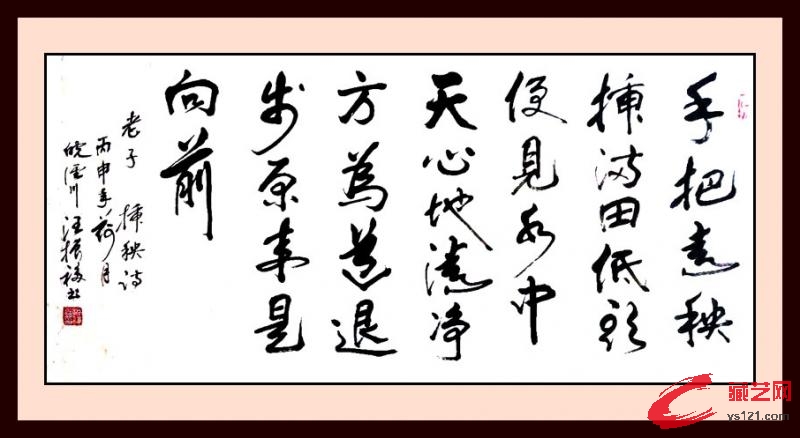 手把青秧
插满田低头
便見水中
天心地清净
方為道退
步原来是
向前
老子 插秧诗
丙申年荷月
皖 川 汪振 书
藏艺网
ys121.com